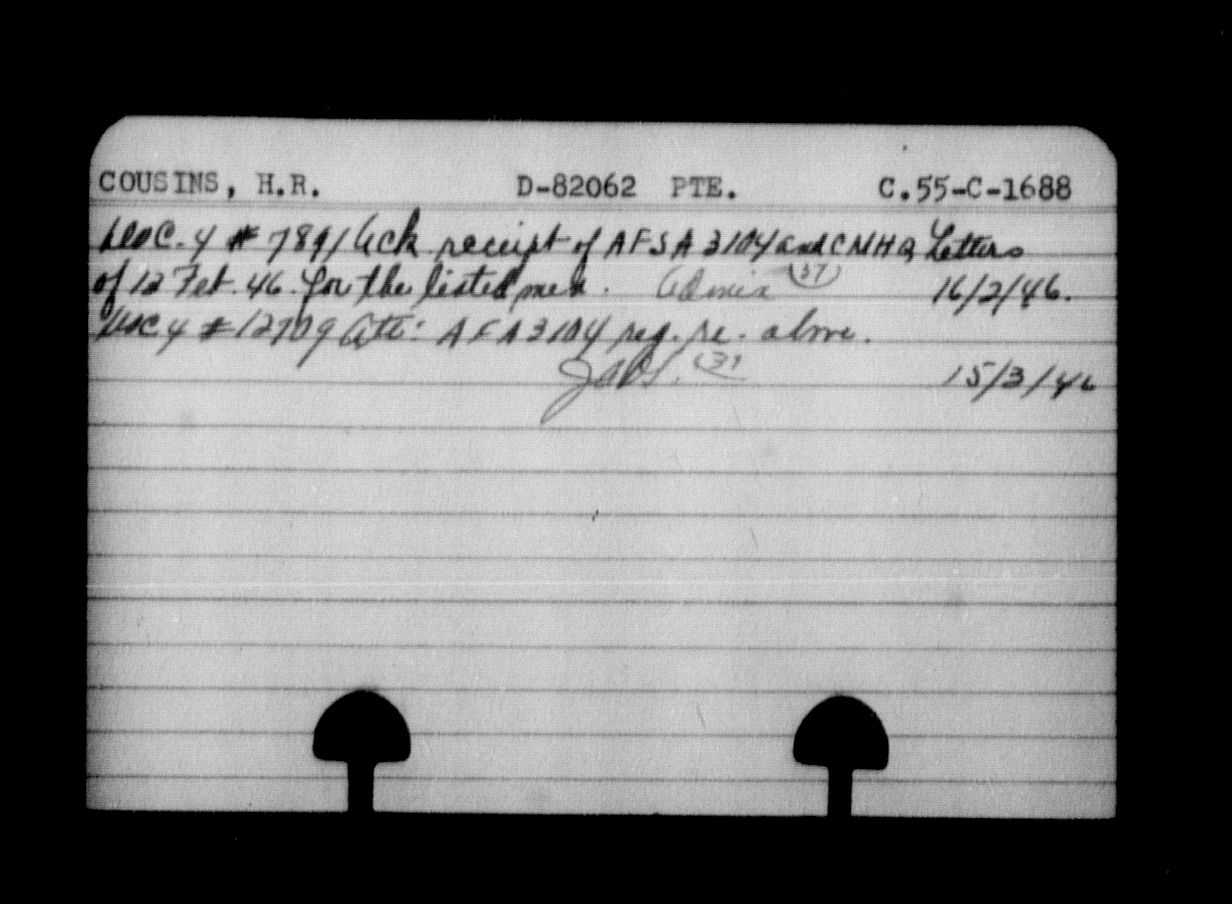 COUSINS, H.R. D-82062 PTE. C.55-C-1688
Doc. 4 # 7891 Ack receipt of AFSA 3104 and CMHQ Letters
of 12 Feb. 46. for the listed men. Admin (37) 16/2/46.
Doc 4 # 12709 Att: AFA3104 reg. re. above.
15/3/46